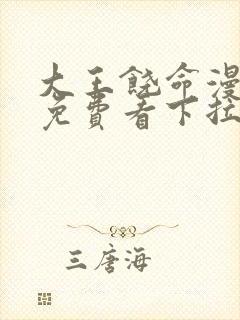 大王饶命漫
免费看下拉
三唐海